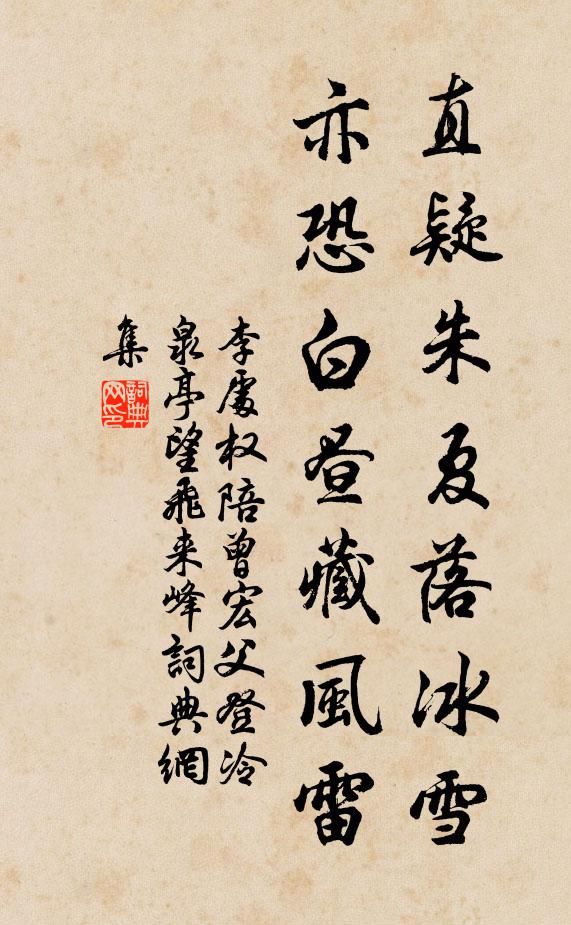 直疑朱夏落冰雪
亦恐白昼藏風雷
李處权陪曾宏父登冷
泉亭望飛来峰詞典網
集
詞典网印